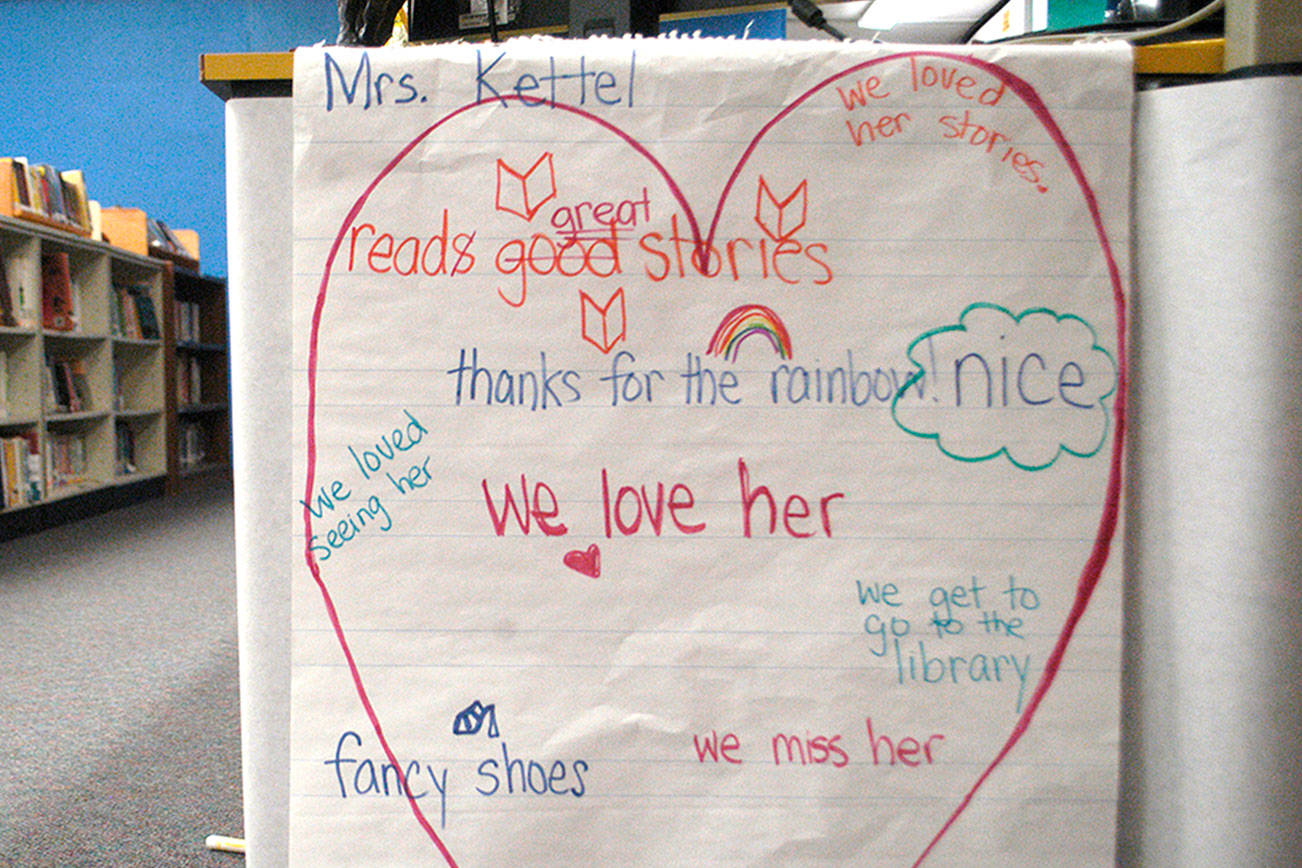 Mrs. Kettel
we loved
her stories.
great
reads good stories
thanks for the rainbow!
nice
we loved
seeing her
we love her
we get to
go to the
library
fancy shoes
we miss her